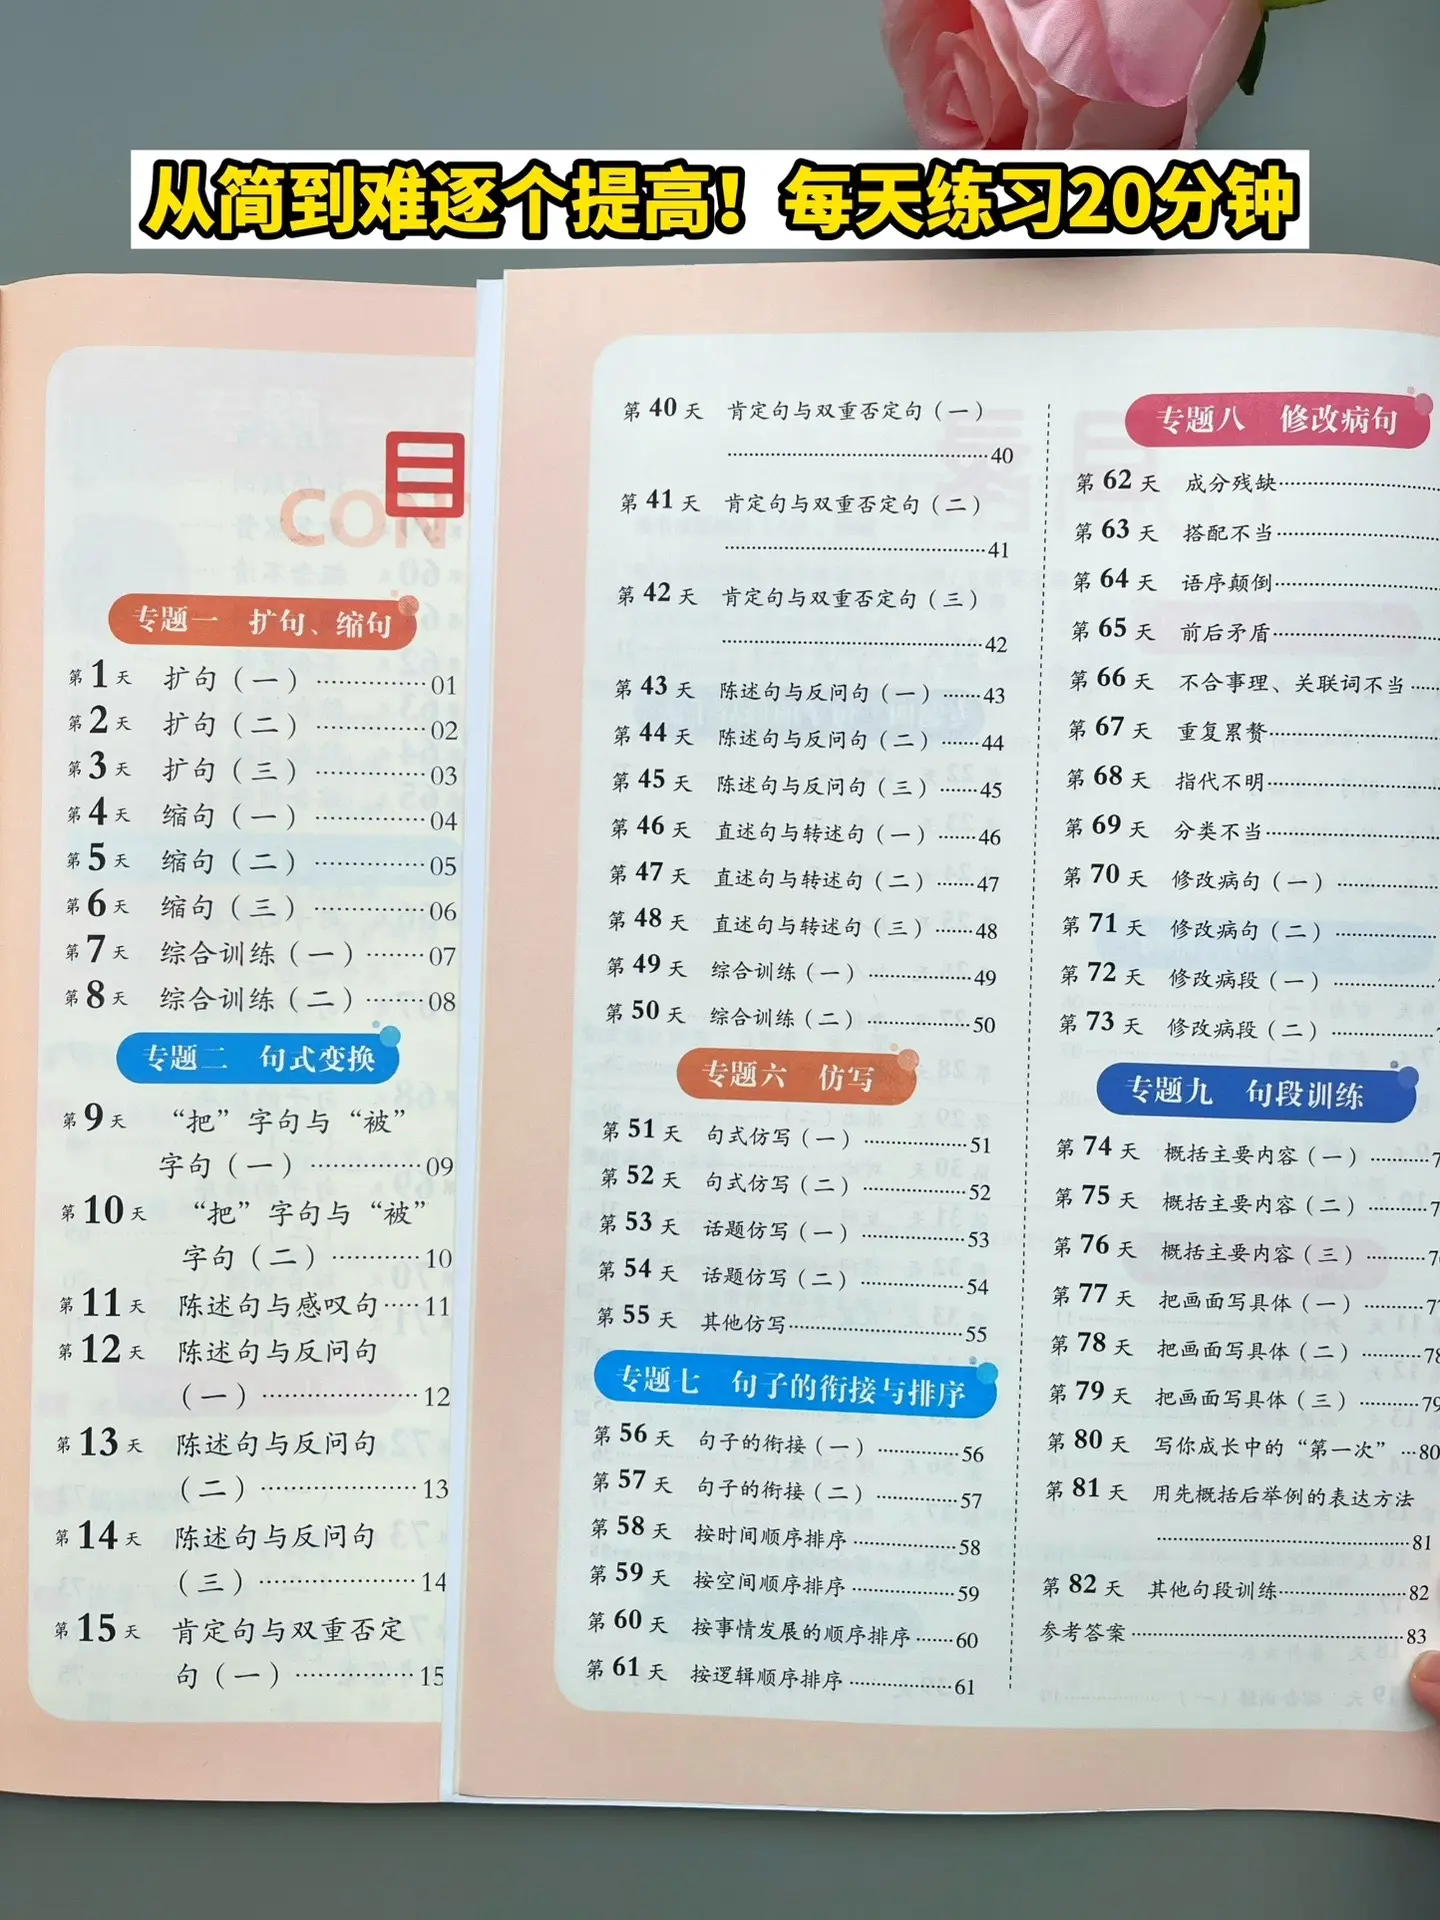 从简到难逐个提高！每天练习20分钟
目
CON
专题一 扩句、缩句
第1天 扩句（一）……………01
第2天 扩句（二）……………02
第3天 扩句（三）……………03
第4天 缩句（一）……………04
第5天 缩句（二）……………05
第6天 缩句（三）……………06
第7天 综合训练（一）………07
第8天 综合训练（二）………08
专题二 句式变换
第9天 “把”字句与“被”
字句（一）……………09
第10天 “把”字句与“被”
字句（二）…………10
第11天 陈述句与感叹句……11
第12天 陈述句与反问句
（一）…………………12
第13天 陈述句与反问句
（二）…………………13
第14天 陈述句与反问句
（三）…………………14
第15天 肯定句与双重否定
句（一）……………15
第40天 肯定句与双重否定句（一）
……………………………40
第41天 肯定句与双重否定句（二）
……………………………41
第42天 肯定句与双重否定句（三）
……………………………42
第43天 陈述句与反问句（一）……43
第44天 陈述句与反问句（二）……44
第45天 陈述句与反问句（三）……45
第46天 直述句与转述句（一）……46
第47天 直述句与转述句（二）……47
第48天 直述句与转述句（三）……48
第49天 综合训练（一）…………49
第50天 综合训练（二）…………50
专题六 仿写
第51天 句式仿写（一）…………51
第52天 句式仿写（二）…………52
第53天 话题仿写（一）…………53
第54天 话题仿写（二）…………54
第55天 其他仿写…………………55
专题七 句子的衔接与排序
第56天 句子的衔接（一）………56
第57天 句子的衔接（二）………57
第58天 按时间顺序排序…………58
第59天 按空间顺序排序…………59
第60天 按事情发展的顺序排序……60
第61天 按逻辑顺序排序…………61
专题八 修改病句
第62天 成分残缺…………………
第63天 搭配不当…………………
第64天 语序颠倒…………………
第65天 前后矛盾…………………
第66天 不合事理、关联词不当……
第67天 重复累赘…………………
第68天 指代不明…………………
第69天 分类不当…………………
第70天 修改病句（一）…………
第71天 修改病句（二）…………
第72天 修改病段（一）…………
第73天 修改病段（二）…………
专题九 句段训练
第74天 概括主要内容（一）………
第75天 概括主要内容（二）………
第76天 概括主要内容（三）………
第77天 把画面写具体（一）………77
第78天 把画面写具体（二）………78
第79天 把画面写具体（三）………79
第80天 写你成长中的“第一次”…80
第81天 用先概括后举例的表达方法
……………………………81
第82天 其他句段训练……………82
参考答案……………………………83